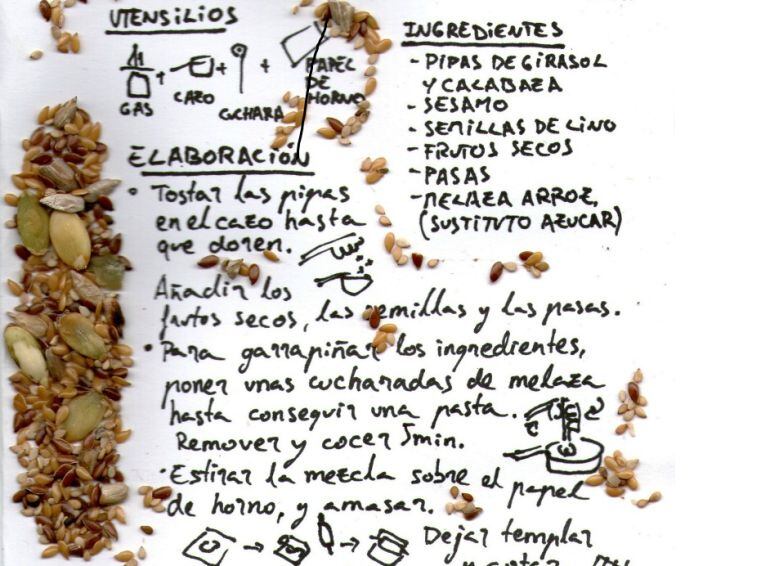 UTENSILIOS
GAS
CAZO
CUCHARA
PAPEL
DE
HORNO
INGREDIENTES
- PIPAS DE GIRASOL
Y CALABAZA
- SESAMO
- SEMILLAS DE LINO
- FRUTOS SECOS
- PASAS
- MELAZA ARROZ.
(SUSTITUTO AZUCAR)
ELABORACIÓN
• Tostar las pipas
en el cazo hasta
que doren.
Añadir los
frutos secos, las semillas y las pasas.
• Para garrapiñar los ingredientes,
poner unas cucharadas de melaza
hasta conseguir una pasta.
Remover y cocer 5min.
• Estirar la mezcla sobre el papel
de horno, y amasar.
Dejar templar